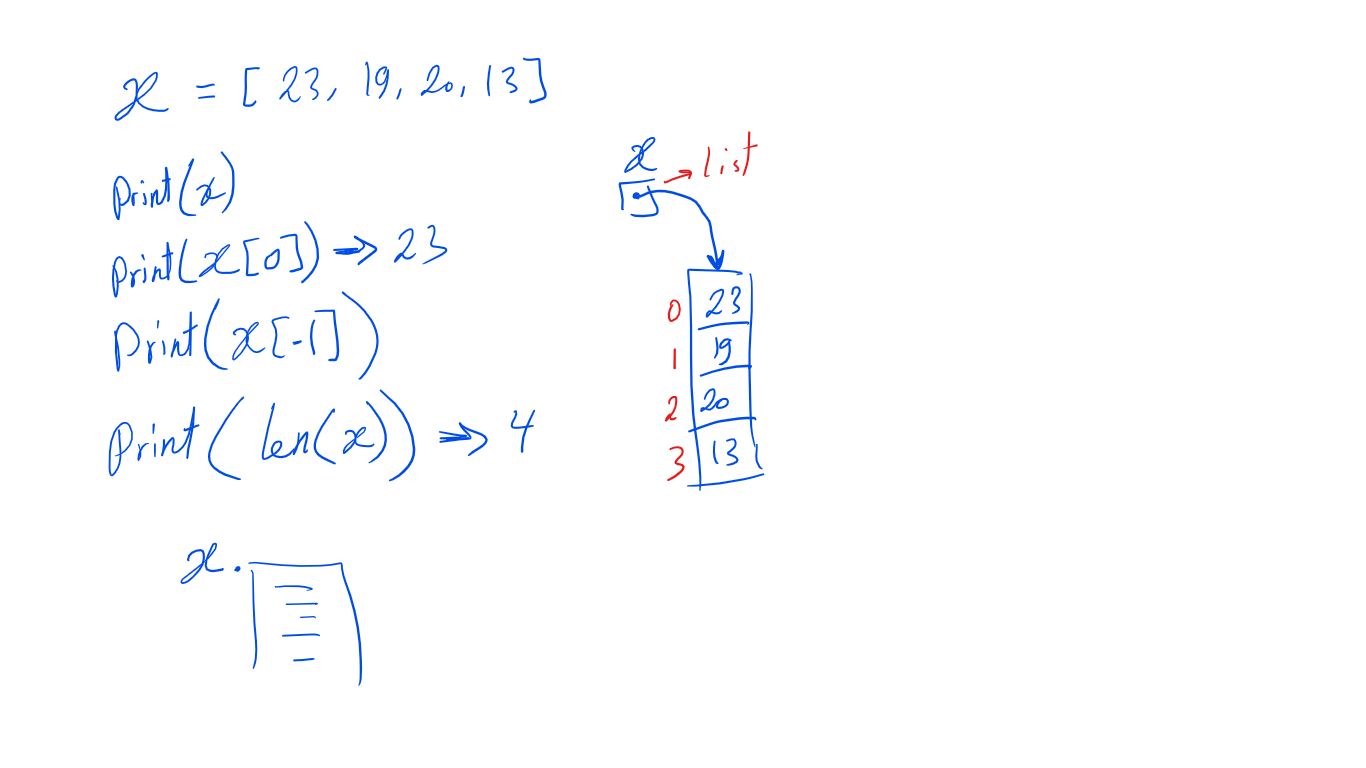 x = [ 23, 19, 20, 13 ]
print(x)
print(x[0]) ⇒ 23
print(x[-1])
print(len(x)) ⇒ 4
x.
x → list
0 23
1 19
2 20
3 13